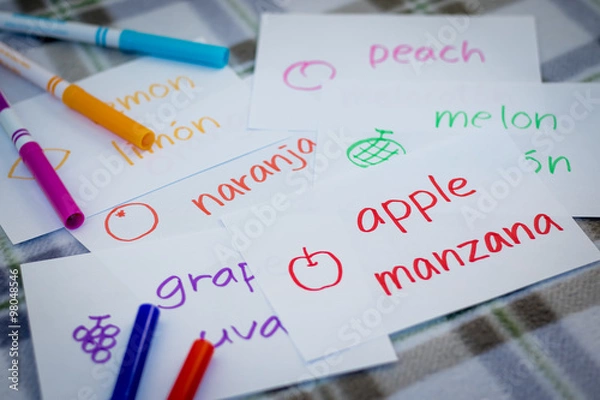 peach
emon
limón
melon
ón
naranja
apple
manzana
grap
uva
Adobe Stock | #98048546